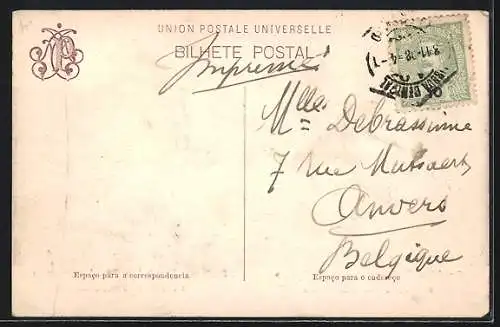 UNION POSTALE UNIVERSELLE
BILHETE POSTAL
Imprimé
Mlle Debrassinne
7 rue Mutsaert
Anvers
Belgique
Espaço para a correspondencia
Espaço para o endereço